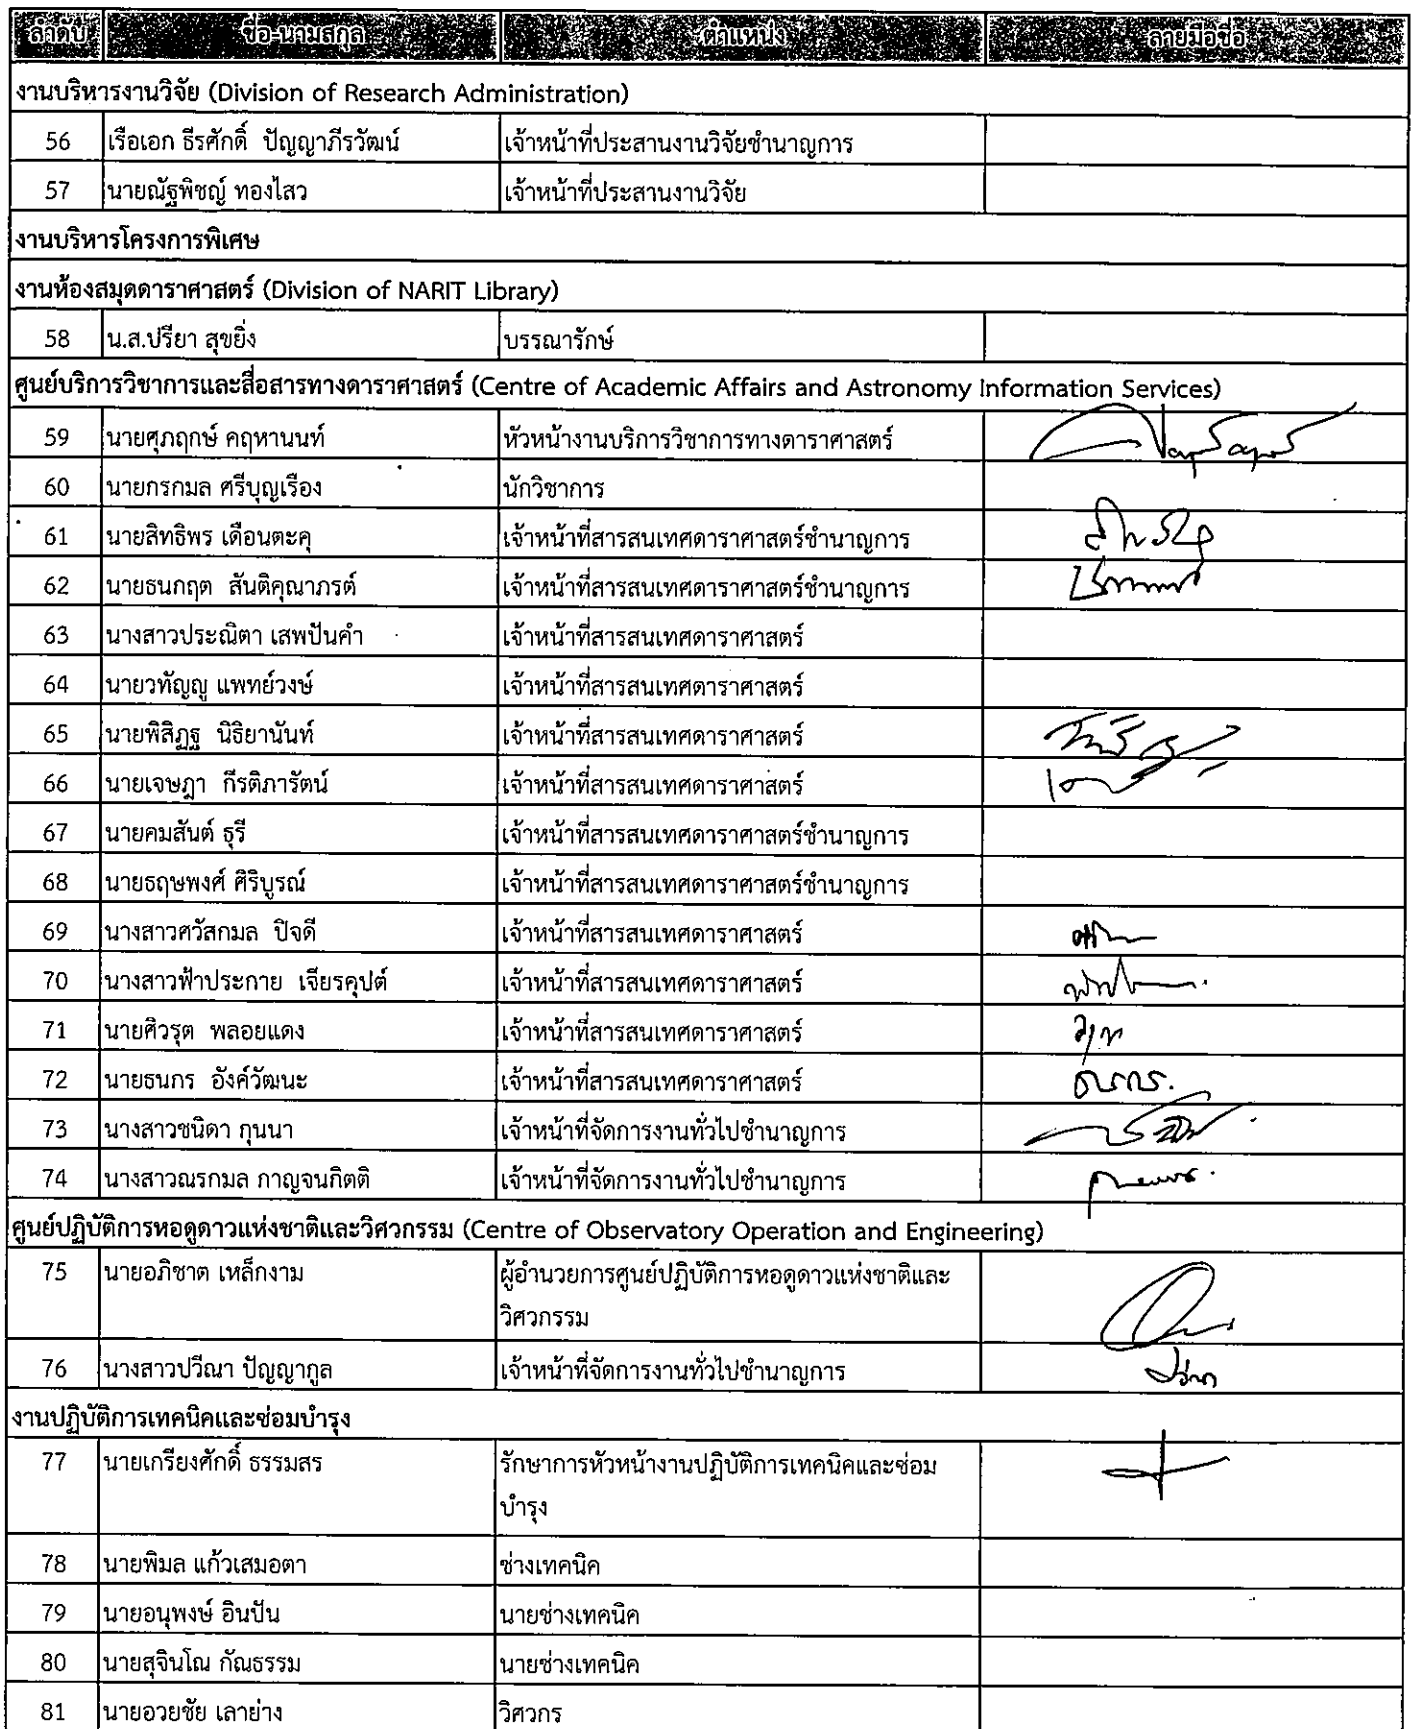 ลำดับ ชื่อ-นามสกุล ตำแหน่ง ลายมือชื่อ
งานบริหารงานวิจัย (Division of Research Administration)
56 เรือเอก ธีรศักดิ์ ปัญญาภีรวัฒน์ เจ้าหน้าที่ประสานงานวิจัยชำนาญการ
57 นายณัฐพิชญ์ ทองไสว เจ้าหน้าที่ประสานงานวิจัย
งานบริหารโครงการพิเศษ
งานห้องสมุดดาราศาสตร์ (Division of NARIT Library)
58 น.ส.ปรียา สุขยิ่ง บรรณารักษ์
ศูนย์บริการวิชาการและสื่อสารทางดาราศาสตร์ (Centre of Academic Affairs and Astronomy Information Services)
59 นายศุภฤกษ์ คฤหานนท์ หัวหน้างานบริการวิชาการทางดาราศาสตร์
60 นายกรกมล ศรีบุญเรือง นักวิชาการ
61 นายสิทธิพร เดือนตะคุ เจ้าหน้าที่สารสนเทศดาราศาสตร์ชำนาญการ
62 นายธนกฤต สันติคุณาภรต์ เจ้าหน้าที่สารสนเทศดาราศาสตร์ชำนาญการ
63 นางสาวประณิตา เสพปันคำ เจ้าหน้าที่สารสนเทศดาราศาสตร์
64 นายวทัญญู แพทย์วงษ์ เจ้าหน้าที่สารสนเทศดาราศาสตร์
65 นายพิสิฏฐ นิธิยานันท์ เจ้าหน้าที่สารสนเทศดาราศาสตร์
66 นายเจษฎา กีรติภารัตน์ เจ้าหน้าที่สารสนเทศดาราศาสตร์
67 นายคมสันต์ ธุรี เจ้าหน้าที่สารสนเทศดาราศาสตร์ชำนาญการ
68 นายธฤษพงศ์ ศิริบูรณ์ เจ้าหน้าที่สารสนเทศดาราศาสตร์ชำนาญการ
69 นางสาวศวัสกมล ปิจดี เจ้าหน้าที่สารสนเทศดาราศาสตร์
70 นางสาวฟ้าประกาย เจียรคุปต์ เจ้าหน้าที่สารสนเทศดาราศาสตร์
71 นายศิวรุต พลอยแดง เจ้าหน้าที่สารสนเทศดาราศาสตร์
72 นายธนกร อังค์วัฒนะ เจ้าหน้าที่สารสนเทศดาราศาสตร์ ธนกร.
73 นางสาวชนิดา กุนนา เจ้าหน้าที่จัดการงานทั่วไปชำนาญการ
74 นางสาวณรกมล กาญจนกิตติ เจ้าหน้าที่จัดการงานทั่วไปชำนาญการ
ศูนย์ปฏิบัติการหอดูดาวแห่งชาติและวิศวกรรม (Centre of Observatory Operation and Engineering)
75 นายอภิชาต เหล็กงาม ผู้อำนวยการศูนย์ปฏิบัติการหอดูดาวแห่งชาติและ
วิศวกรรม
76 นางสาวปวีณา ปัญญากูล เจ้าหน้าที่จัดการงานทั่วไปชำนาญการ
งานปฏิบัติการเทคนิคและซ่อมบำรุง
77 นายเกรียงศักดิ์ ธรรมสร รักษาการหัวหน้างานปฏิบัติการเทคนิคและซ่อม
บำรุง
78 นายพิมล แก้วเสมอตา ช่างเทคนิค
79 นายอนุพงษ์ อินปัน นายช่างเทคนิค
80 นายสุจินโณ กัณธรรม นายช่างเทคนิค
81 นายอวยชัย เลาย่าง วิศวกร